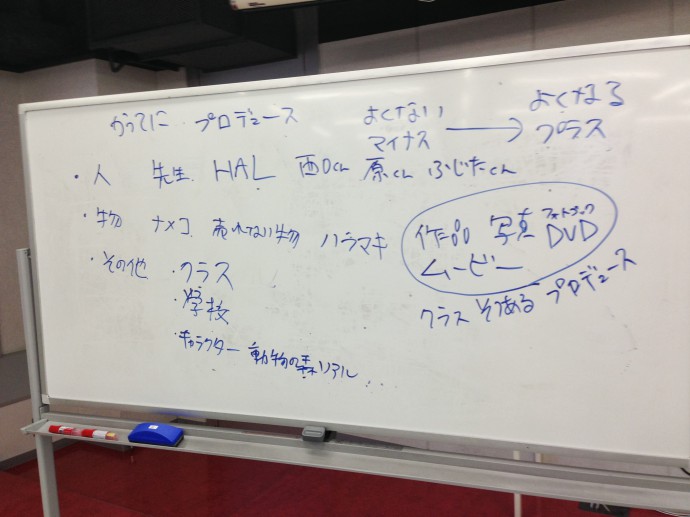 かってに プロデュース
よくない マイナス → よくなる プラス
・人 先生 HAL 西口くん 原くん ふじたくん
・物 ナメコ 売れてない物 ハラマキ
作品 写真 フォトブック DVD
ムービー
・その他 ・クラス
クラス そつある プロデュース
・学校
・キャラクター 動物の森リアル